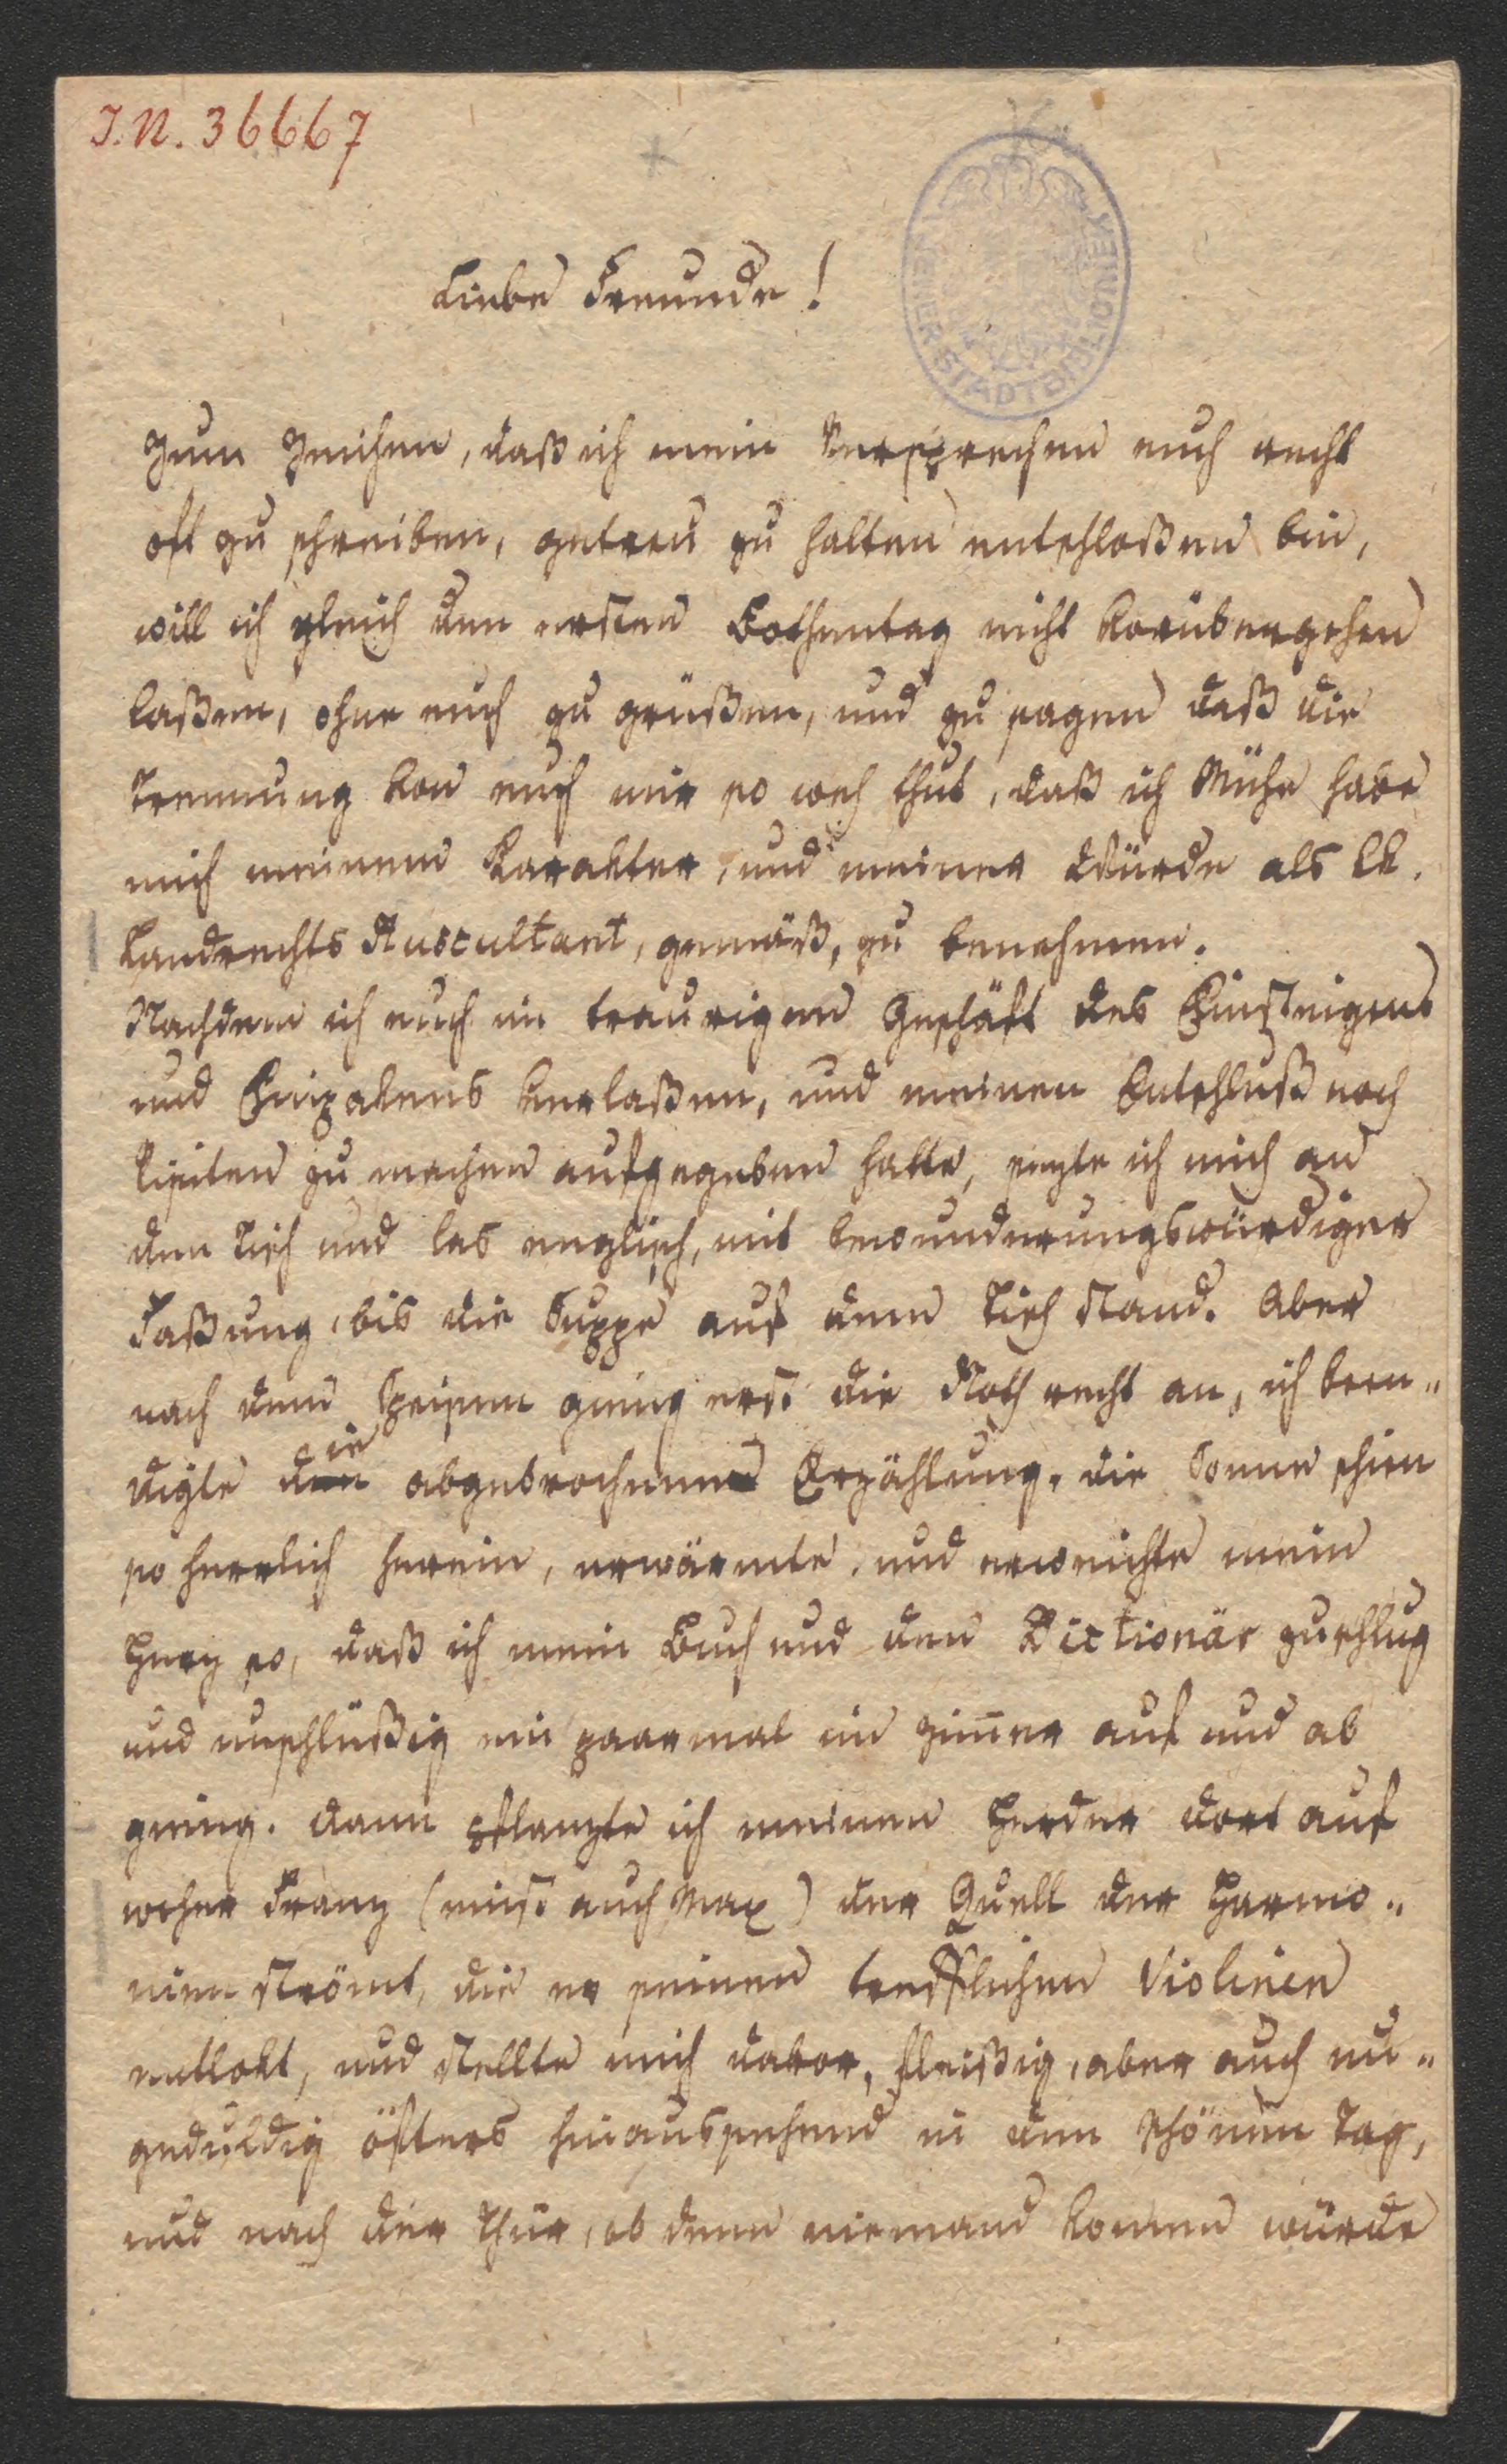 I.N. 36667
WIENER STADTBIBLIOTHEK
Liebe Freunde!
Zum Zeichen, daß ich mein Versprechen euch recht
oft zu schreiben, getreu zu halten entschloßen bin,
will ich gleich den ersten Bothentag nicht vorübergehen
laßen, ohne euch zu grüßen, und zu sagen daß die
Trennung von euch mir so weh thut, daß ich Mühe habe
mich meinem Karakter, und meiner Würde als kk.
Landrechts Auscultant, gemäß, zu benehmen.
Nachdem ich euch im traurigen Geschäft des Einsteigens
und Einpakens verlaßen, und meinen Entschluß noch
Visiten zu machen aufgegeben hatte, sezte ich mich an
den Tisch und las englisch, mit bewunderungswürdiger
Faßung, bis die Suppe auf dem Tisch stand. Aber
nach dem Speisen gieng erst die Noth recht an, ich been„
digte die abgebrochene Erzählung, die Sonne schien
so herrlich herein, erwärmte, und erweichte mein
Herz so, daß ich mein Buch und den Dictionär zuschlug
und unschlüßig ein paarmal im Zim̄er auf und ab
gieng. Dann pflanzte ich meinen Herder dort auf
woher Franz (einst auch Max) der Quell der Harmo„
nien strömt, die er seinen trefflichen Violinen
entlokt, und stellte mich davor, fleißig, aber auch un„
geduldig öfters hinaussehend in den schönen Tag,
und nach der Thür, ob denn niemand kom̄en würde